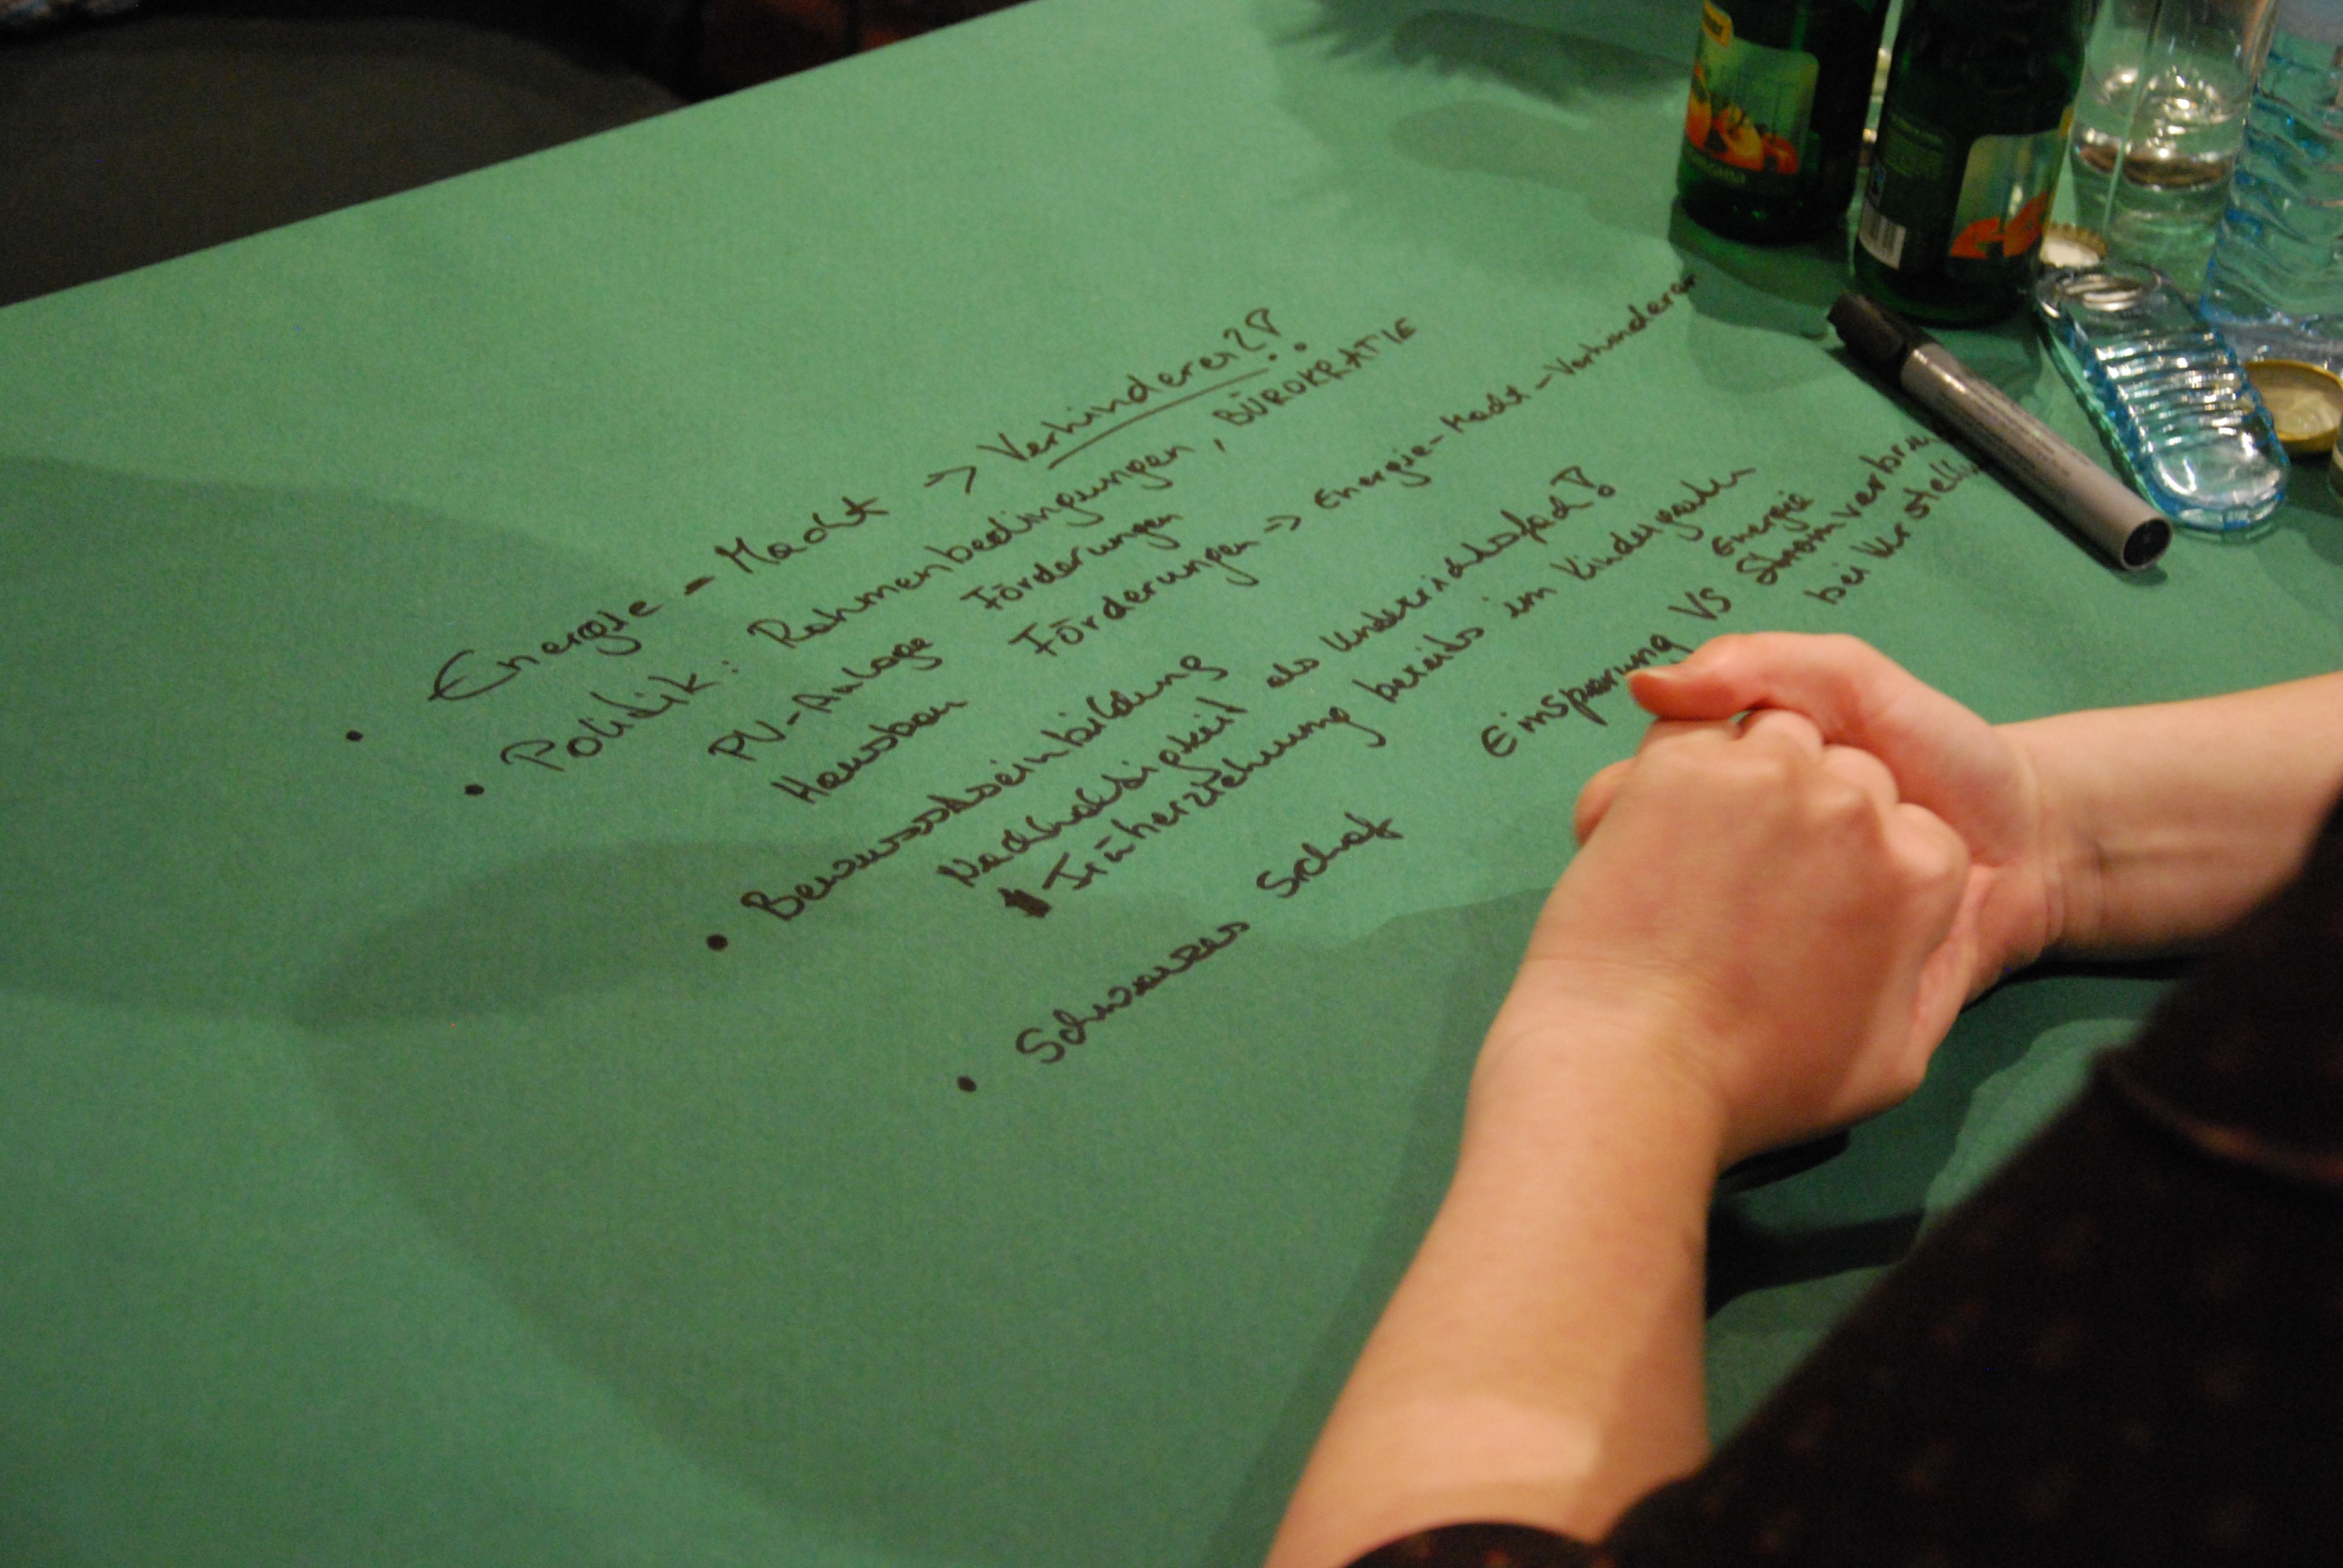 • Energie - Macht → Verhinderer?!
• Politik: Rahmenbedingungen, BÜROKRATIE
PV-Anlage Förderungen
Hausbau Förderungen → Energie-Macht-Verhinderer
• Bewusstseinbildung
Nachhaltigkeit als Unterrichtsfach!
Früherziehung bereits im Kindergarten
• Schwarzes Schaf
Einsparung VS Energie
Stromverbrau
bei